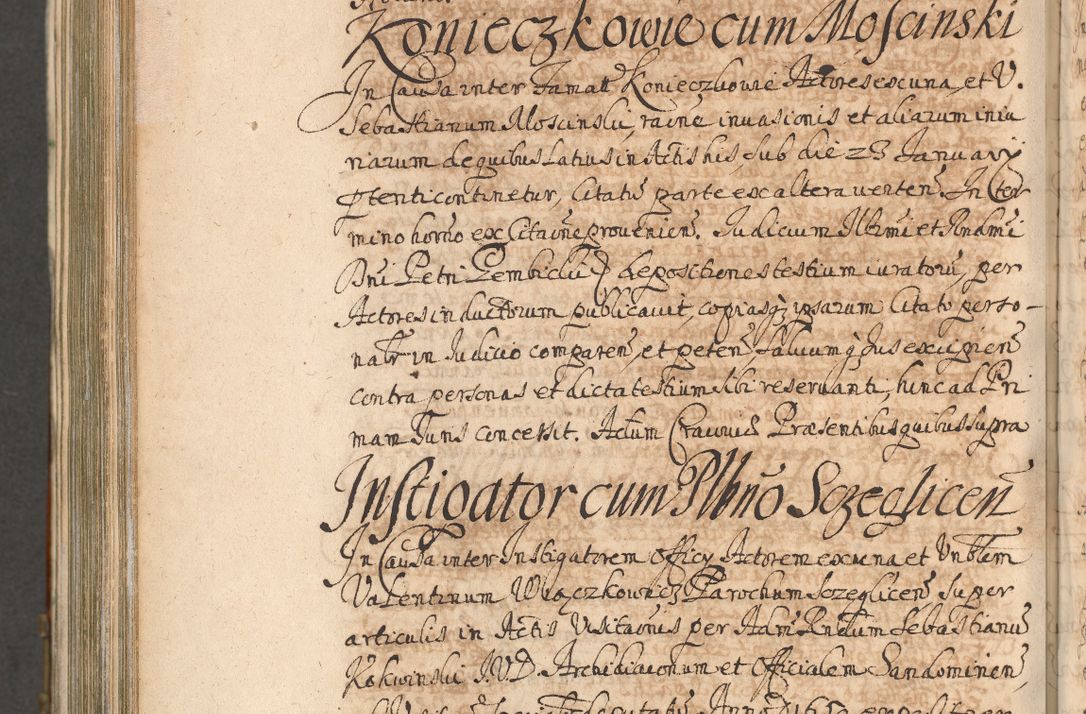 Konieczkowie cum Moscinski
In Causa inter Famatt Konieczkowie Actores ex una, et V.
Sebastianum Moscinski, raĩne inuasionis et aliarum iniu
riarum de quibus Latius in Actis his, sub die 23 Januarij
pntenti continetur, Citatũ parte ex altera uerten. In Ter
mino hoĩno ex Citaõne prouenien̄. Judicium Illĩmi et Rndĩmi
Dni Petri Gembicki depositiones testium iuratorũ, per
Actores in ductorum publicauit, copiasq; ipsarum Citato perso-
nalr̃ in Judicio comparen̄, et peten̄, saluumq; Jus excipien̄
contra personas et dicta testium sibi reseruanti, hinc ad Pri
mam Juris concessit. Actum Cracouiæ Præsentibus quibus supra
Instigator cum Plbño Sczeglicen̄
In Causa inter Instigatorem Officij Actorem ex una et Vnblem
Valentinum Wiączkowicz Parochum Sczeglicen̄ super
articulis in Actis Visitaõnis per Adm̃ Rndum Sebastianũ
Kokwinski I.V.D. Archidiaconum et Officialem Sandomirien̄,